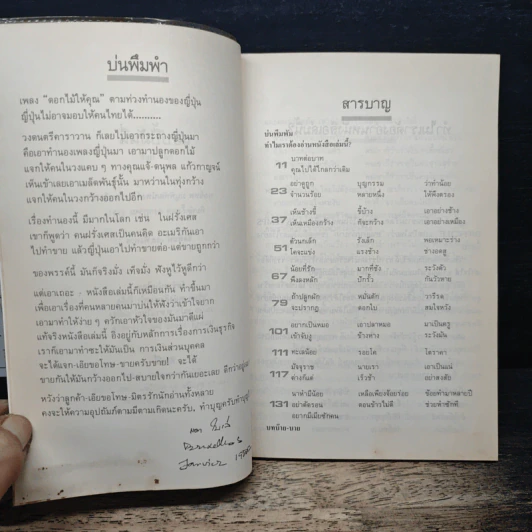 บ่นพึมพำ
เพลง "ดอกไม้ให้คุณ" ตามท่วงทำนองของญี่ปุ่น
ญี่ปุ่นไม่อาจมอบให้คนไทยได้..........
วงดนตรีคาราวาน ก็เลยไปเอากระถางญี่ปุ่นมา
คือเอาทำนองเพลงญี่ปุ่นมา เอามาปลูกดอกไม้
แจกให้คนในวงแคบ ๆ ทางคุณแจ้-ดนุพล แก้วกาญจน์
เห็นเข้าเลยเอาเมล็ดพันธุ์นั้น มาหว่านในทุ่งกว้าง
แจกให้คนในวงกว้างออกไปอีก
เรื่องทำนองนี้ มีมากในโลก เช่น ในฝรั่งเศส
เขาก็พูดว่า คนฝรั่งเศสเป็นคนคิด อะเมริกันเอา
ไปทำขาย แล้วญี่ปุ่นเอาไปทำขายต่อ-แต่ขายถูกกว่า
ของพรรค์นี้ มันก็จริงมั่ง เท็จมั่ง ฟังหูไว้หูดีกว่า
แต่เอาเถอะ - หนังสือเล่มนี้ก็เหมือนกัน ทำขึ้นมา
เพื่อเอาเรื่องที่คนหลายคนมาบ่นให้ฟังว่าเข้าใจยาก
เอามาทำให้ง่าย ๆ ควักเอาหัวใจของมันมาตีแผ่
แท้จริงหนังสือเล่มนี้ อิงอยู่กับหลักการเรื่องการเงินธุรกิจ
เราก็เอามาทำซะให้มันเป็น การเงินส่วนบุคคล
จะได้แจก-เอ้ยขอโทษ-ขายครับขาย! จะได้
ขายกันให้มันกว้างออกไป-สบายใจกว่ากันเยอะเลย
หวังว่าลูกค้า-เอ้ยขอโทษ-มิตรรักนักอ่านทั้งหลาย
คงจะให้ความอุปถัมภ์ตามมีตามเกิดนะครับ.
Bruxelles
Janvier
สารบาญ
บ่นพึมพำ
ทำไมเราต้องอ่านหนังสือเล่มนี้?
11 บาทต่อบาท
คูณไปได้ไกลกว่าเดิม
23 อย่าดูถูก บุญกรรม ว่าทำน้อย
จำนวนร้อย หลายหนึ่ง ให้พึงตรอง
37 เห็นช้างขี้ ขี้บ้าง เอาอย่างช้าง
เห็นเหมืองกว้าง ก็จะกว้าง เอาอย่างเหมือง
51 ตัวนกเล็ก รังเล็ก พอเหมาะร่าง
67 น้อยที่รัก มากที่ชัง ระวังตัว
พึงลงหลัก ปักรั้ว กันวัวหาย
79 ถ้าปลูกผัก หมั่นตัก วารีรด
จะปรากฏ ดอกใบ สมใจหวัง
101 อย่าเป็นหมอ เอาปลาหมอ มาเป็นครู
เข้าจับงู ข้างหาง ระวังมัน
111 ทะเลน้อย รอยโต โตราคา
117 มัจจุราช นายเรา เอาเป็นแน่
ต่างก็แต่ เร็วช้า อย่าสงสัย
131 นาทำมีน้อย เหลือเพียงร้อยร่อย
อย่าตัดรอน ตอนข้าวไม่ดี ช่วยทำซักที
อยากมีเมียซักคน
บทน้าย-บาย